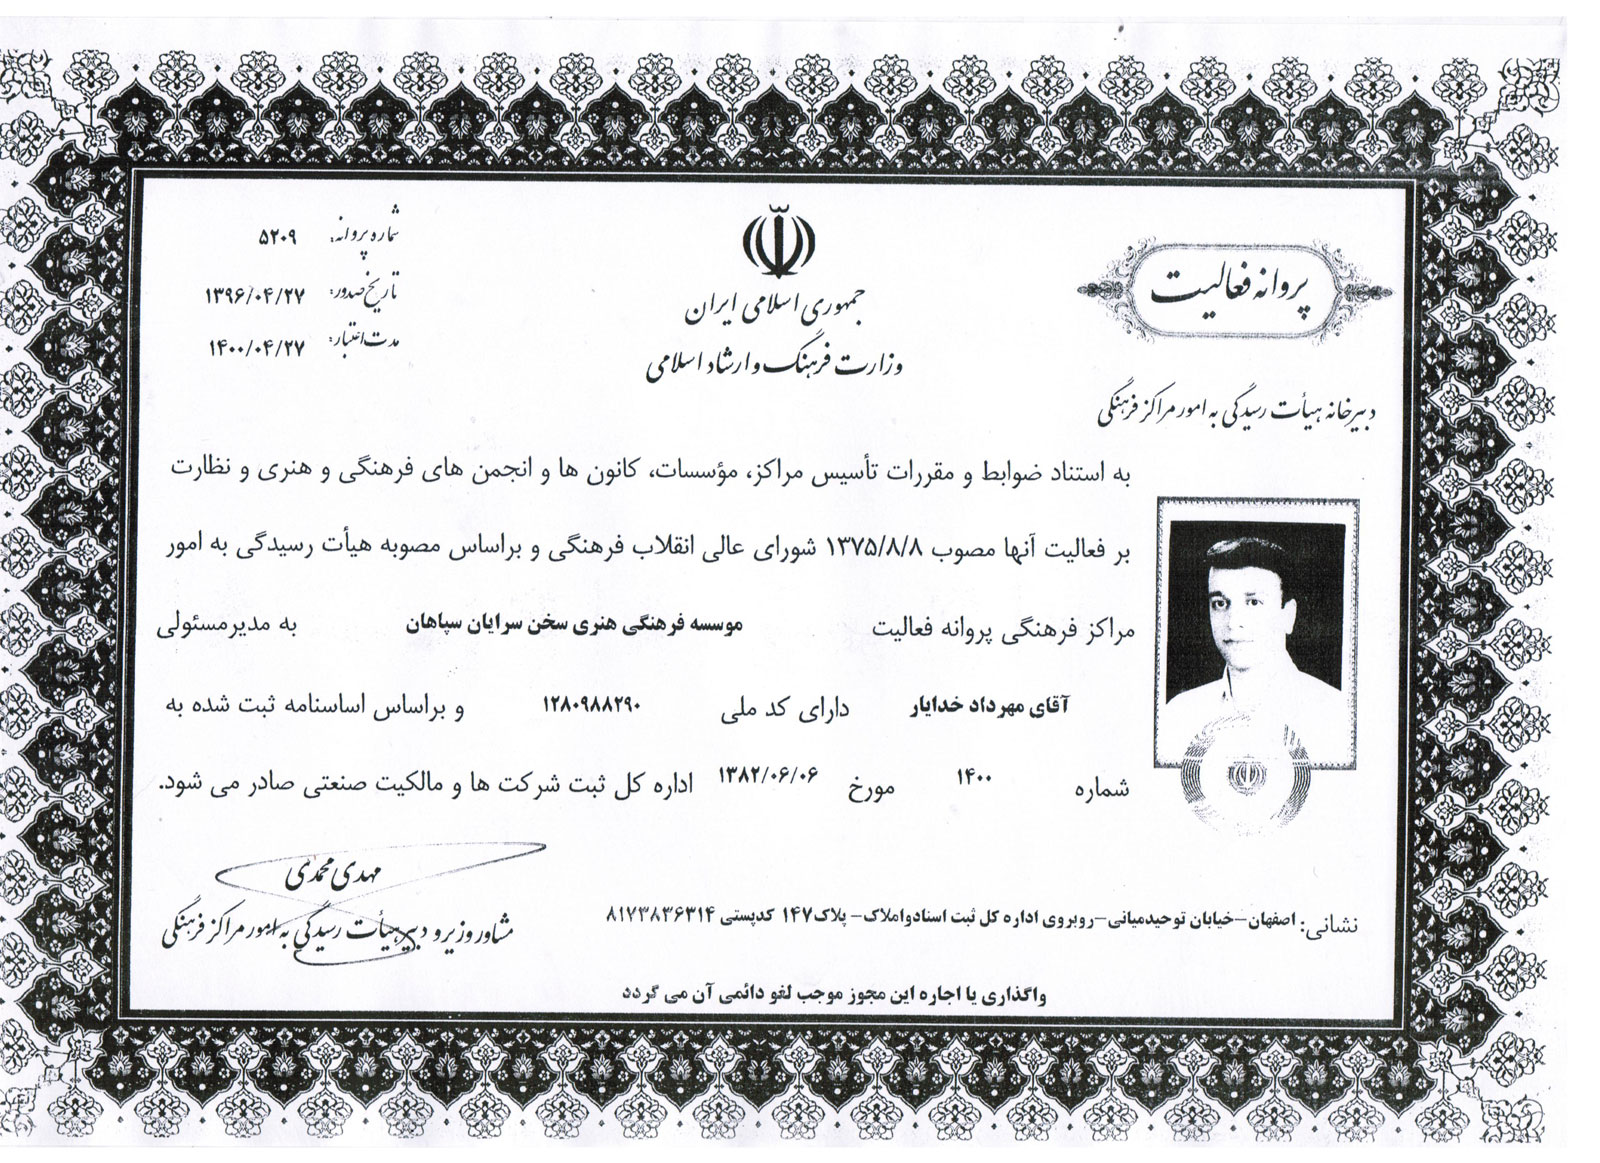 پروانه فعالیت
دبیرخانه هیأت رسیدگی به امور مراکز فرهنگی
جمهوری اسلامی ایران
وزارت فرهنگ و ارشاد اسلامی
شماره پروانه: ۵۲۰۹
تاریخ صدور: ۱۳۹۶/۰۴/۲۷
مدت اعتبار: ۱۴۰۰/۰۴/۲۷
به استناد ضوابط و مقررات تأسیس مراکز، مؤسسات، کانون ها و انجمن های فرهنگی و هنری و نظارت
بر فعالیت آنها مصوب ۱۳۷۵/۸/۸ شورای عالی انقلاب فرهنگی و براساس مصوبه هیأت رسیدگی به امور
مراکز فرهنگی پروانه فعالیت موسسه فرهنگی هنری سخن سرایان سپاهان به مدیرمسئولی
آقای مهرداد خدایار دارای کد ملی ۱۲۸۰۹۸۸۲۹۰ و براساس اساسنامه ثبت شده به
شماره ۱۴۰۰ مورخ ۱۳۸۲/۰۶/۰۶ اداره کل ثبت شرکت ها و مالکیت صنعتی صادر می شود.
مهدی محمدی
مشاور وزیر و دبیر هیأت رسیدگی به امور مراکز فرهنگی
نشانی: اصفهان-خیابان توحیدمیانی-روبروی اداره کل ثبت اسنادواملاک- پلاک۱۴۷ کدپستی ۸۱۷۳۸۳۶۳۱۴
واگذاری یا اجاره این مجوز موجب لغو دائمی آن می گردد